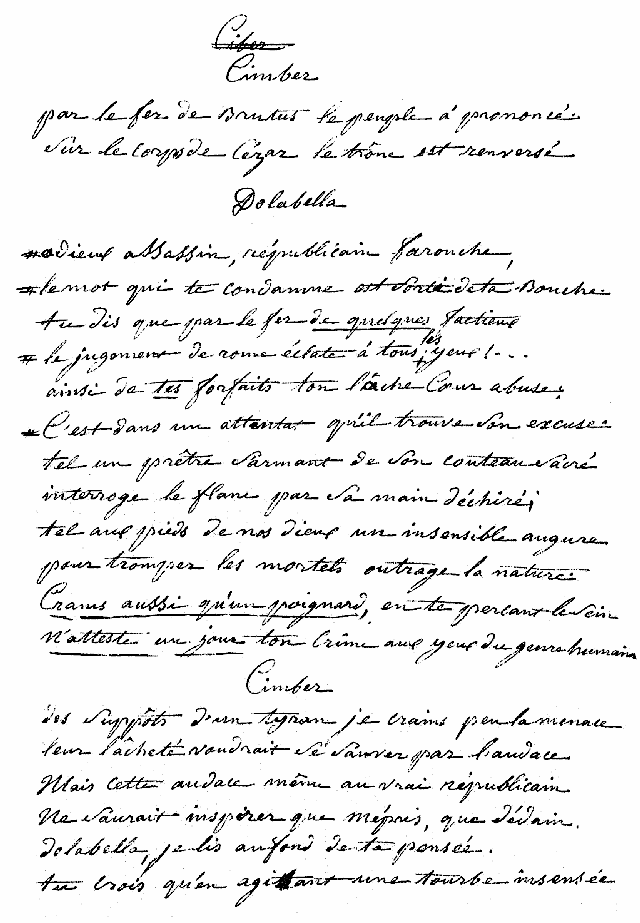 Ciber
Cimber
par le fer de Brutus le peuple á prononcé.
Sur le corps de Cézar le trône est renversé
Dolabella
odieux assassin, républicain farouche,
le mot qui te condamne est sorti de ta Bouche.
tu dis que par le fer de quelques factieux
le jugement de rome éclate à tous les yeux!...
ainsi de tes forfaits ton lâche Cœur abuse;
C'est dans un attentat qu'il trouve son excuse.
tel un prêtre s'armant de son couteau sacré
interroge le flanc par sa main déchiré;
tel aux pieds de nos dieux un insensible augure
pour tromper les mortels outrage la nature.
Crains aussi qu'un poignard, en te perçant le sein
N'atteste un jour ton Crime aux yeux du genre humain
Cimber
des suppôts d'un tyran je crains peu la menace
leur lâcheté voudrait se sauver par l'audace
Mais cette audace même au vrai républicain
Ne saurait inspirer que mépris, que dédain.
dolabella, je lis au fond de ta pensée.
tu crois qu'en agitant une tourbe insensée